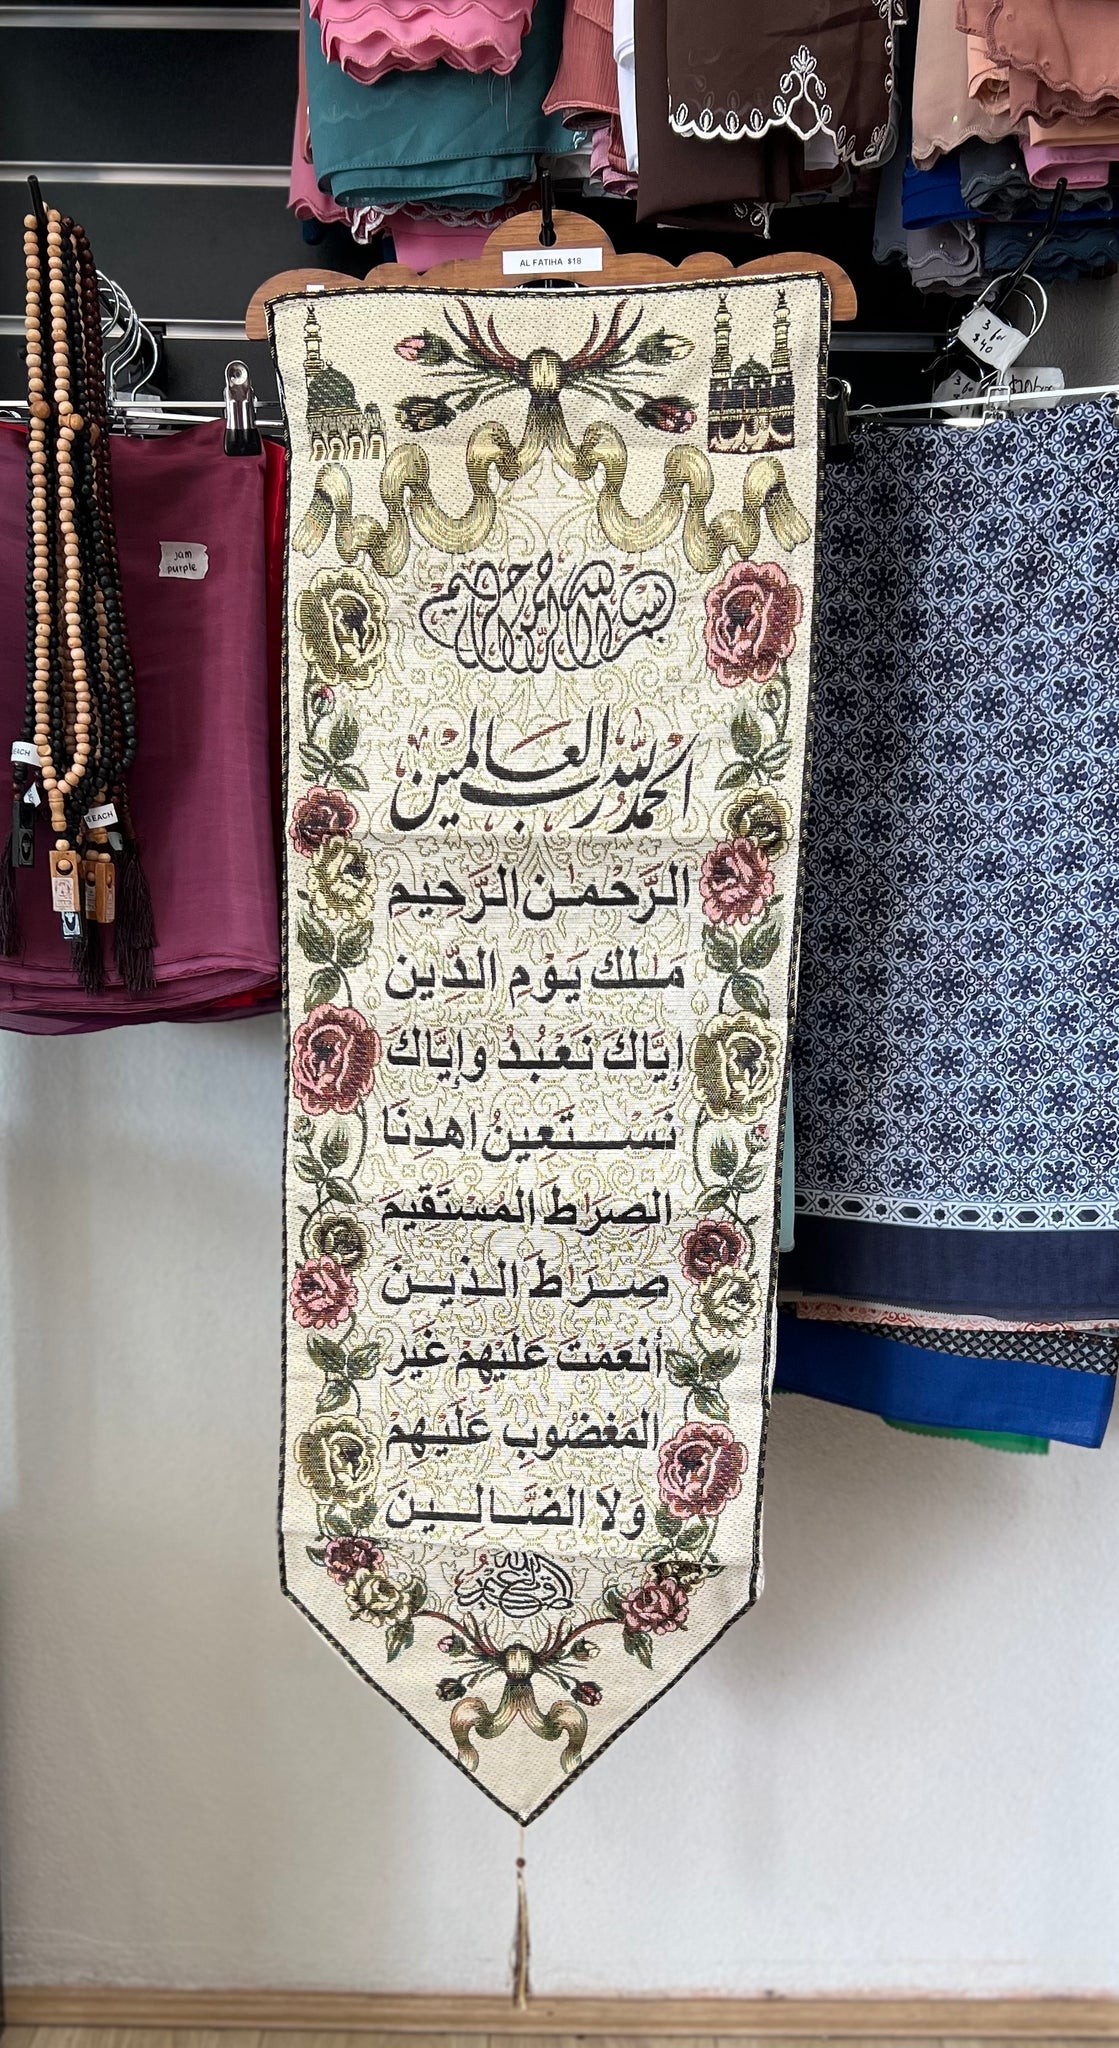 AL FATIHA $18
3 for
$40
jam
purple
EACH
EACH
بسم الله الرحمن الرحيم
الحمد لله رب العالمين
الرَّحْمَـٰنِ الرَّحِيمِ
مَـٰلِكِ يَوْمِ الدِّينِ
إِيَّاكَ نَعْبُدُ وَإِيَّاكَ
نَسْتَعِينُ اهْدِنَا
الصِرَٰطَ المُسْتَقِيمَ
صِرَٰطَ الذِينَ
أنعَمْتَ عَلَيْهِمْ غَيْرِ
المَغضُوبِ عَلَيْهِمْ
وَلَا الضَّالِينَ